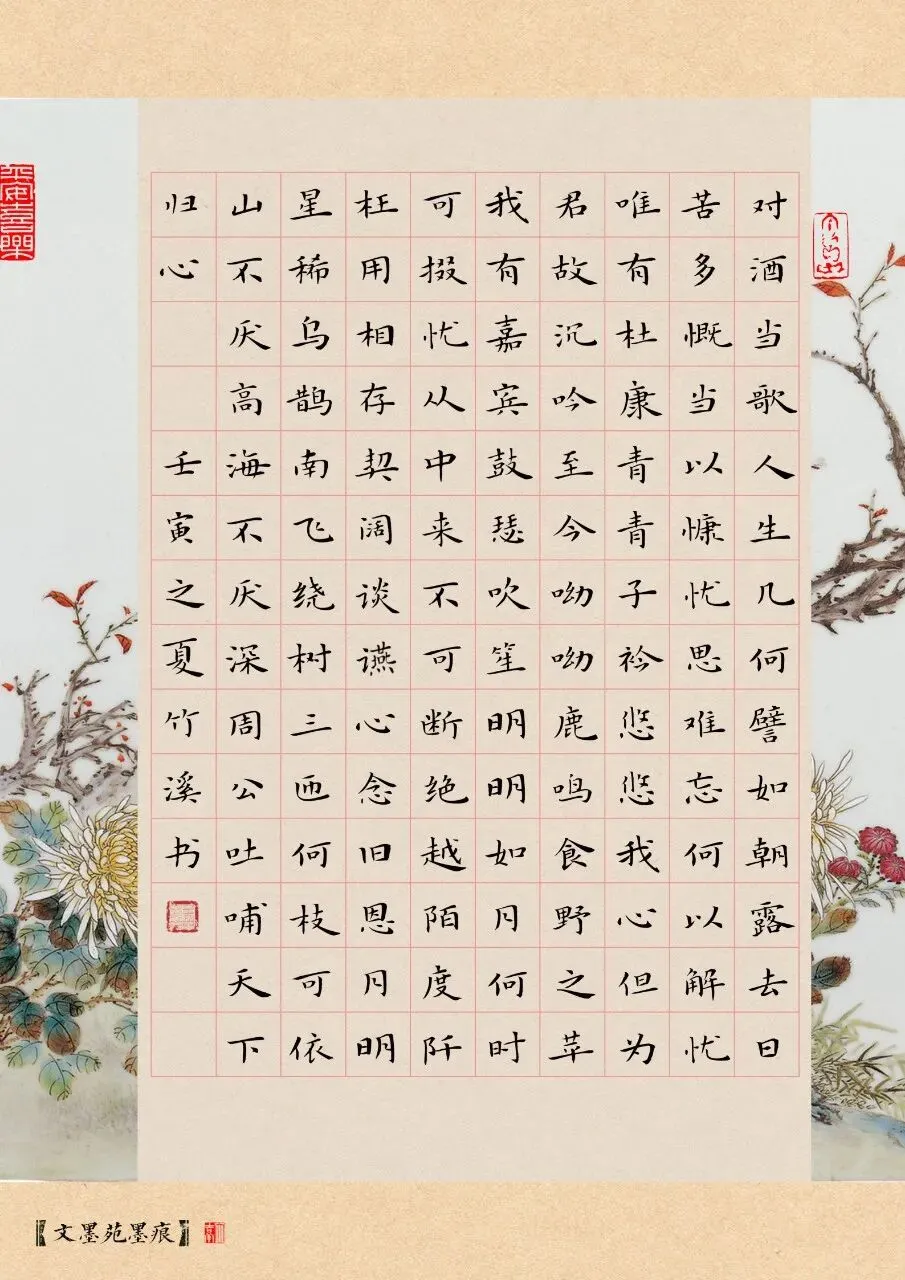 对酒当歌人生几何譬如朝露去日
苦多慨当以慷忧思难忘何以解忧
唯有杜康青青子衿悠悠我心但为
君故沉吟至今呦呦鹿鸣食野之苹
我有嘉宾鼓瑟吹笙明明如月何时
可掇忧从中来不可断绝越陌度阡
枉用相存契阔谈䜩心念旧恩月明
星稀乌鹊南飞绕树三匝何枝可依
山不厌高海不厌深周公吐哺天下
归心 壬寅之夏竹溪书
平安喜樂
【文墨苑墨痕】